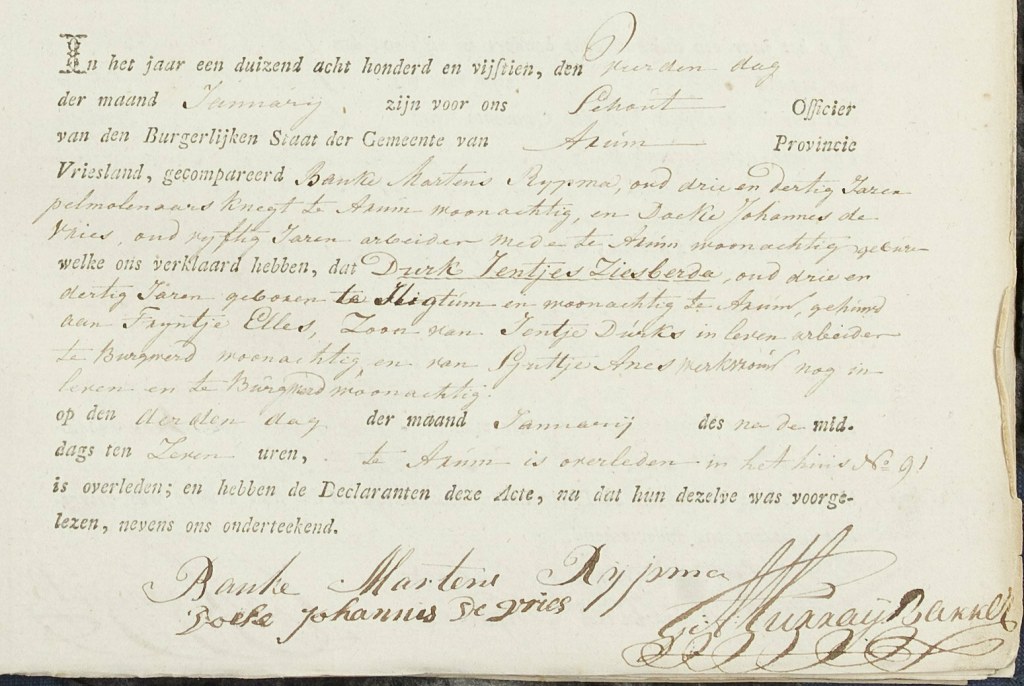 In het jaar een duizend acht honderd en vijftien, den vierden dag
der maand Januarij zijn voor ons Schout Officier
van den Burgerlijken Staat der Gemeente van Arum Provincie
Vriesland, gecompareerd Bauke Martens Rypma, oud drie en dertig Jaren
pelmolenaars knegt te Arum woonachtig, en Doeke Johannes de
Vries, oud vyftig Jaren arbeider mede te Arum woonachtig gebure
welke ons verklaard hebben, dat Durk Jentjes Ziesberda, oud drie en
dertig Jaren geboren te Higtum en woonachtig te Arum, gehuwd
aan Fryntje Elles, Zoon van Jentje Durks in leven arbeider
te Burgwerd woonachtig en van Sjuttje Anes werkvrouw nog in
leven en te Burgwerd woonachtig.
op den derden dag der maand Januarij des na de mid-
dags ten Zeven uren, te Arum is overleden in het huis No 91
is overleden; en hebben de Declaranten deze Acte, na dat hun dezelve was voorge-
lezen, nevens ons onderteekend.
Bauke Martens Rypma
Doeke Johannes De Vries
Murray Bakker